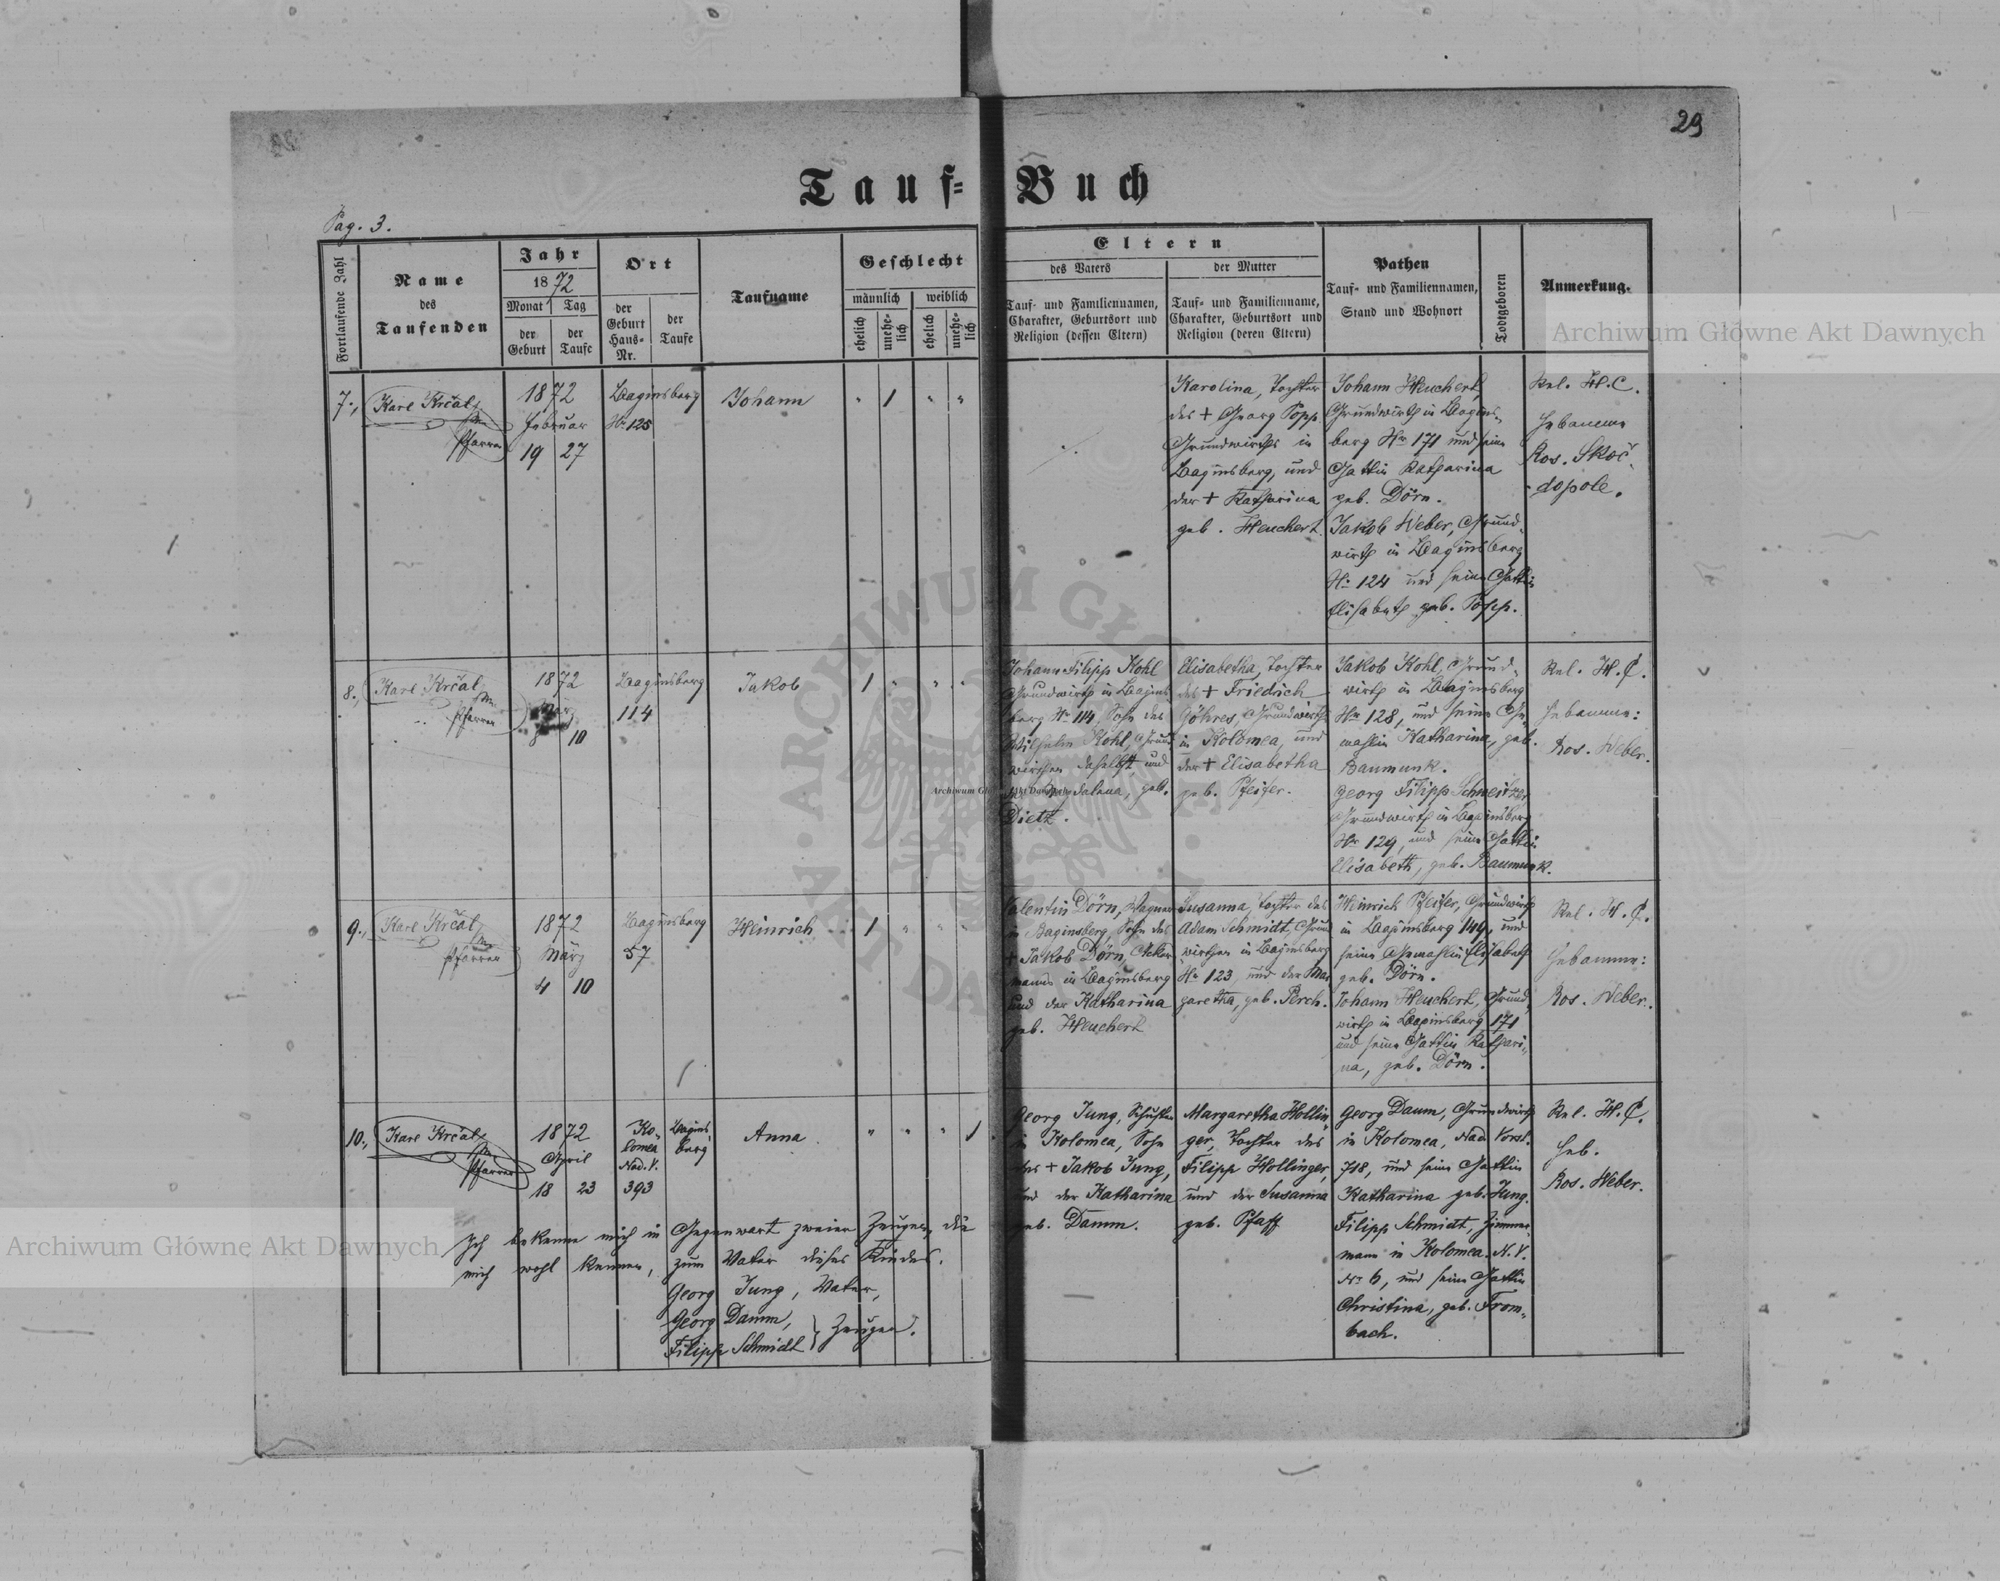 29
Tauf-Buch
Pag. 3.
Fortlaufende Zahl
Name
des
Taufenden
Jahr
1872
Monat
Tag
der
Geburt
der
Taufe
Ort
der
Geburt
Haus-
Nr.
der
Taufe
Taufname
Geschlecht
männlich
weiblich
ehelich
unehe-
lich
ehelich
unehe-
lich
Eltern
des Vaters
der Mutter
Tauf- und Familiennamen,
Charakter, Geburtsort und
Religion (dessen Eltern)
Tauf- und Familienname,
Charakter, Geburtsort und
Religion (deren Eltern)
Pathen
Tauf- und Familiennamen,
Stand und Wohnort
Todtgeboren
Anmerkung.
Archiwum Główne Akt Dawnych
7.,
Karl Krčal,
Pfarrer
1872
Februar
19 27
Baginsberg
Nr 125
Johann
" 1 " "
Karolina, Tochter
des + Georg Popp
Grundwirths in
Baginsberg, und
der + Katharina
geb. Heuchert.
Johann Heuchert,
Grundwirth in Bagins-
berg Nr 171 und seine
Gattin Katharina
geb. Dörn.
Jakob Weber, Grund-
wirth in Baginsberg
Nr 124 und seine Gattin
Elisabeth geb. Popp.
Rel. H. C.
Hebamme
Ros. Skoč-
dopole.
8.,
Karl Krčal,
Pfarrer
1872
März
8 10
Baginsberg
114
Jakob
1 " " "
Johann Filipp Kohl
Grundwirth in Bagins-
berg Nr 114, Sohn des
Wilhelm Kohl, Grund-
wirthen daselbst, und
der Magdalena, geb.
Dietz.
Elisabetha, Tochter
des + Friedrich
Göhres, Grundwirth
in Kolomea, und
der + Elisabetha
geb. Pfeifer.
Jakob Kohl, Grund-
wirth in Baginsberg
Nr 128, und seine Ge-
mahlin Katharina, geb.
Baumunk.
Georg Filipp Schweitzer,
Grundwirth in Baginsberg
Nr 129, und seine Gattin
Elisabeth, geb. Baumunk.
Rel. H. C.
Hebamme:
Ros. Weber.
9.,
Karl Krčal,
Pfarrer
1872
März
4 10
Baginsberg
57
Heinrich
1 " " "
Valentin Dörn, Wagner
in Baginsberg, Sohn des
+ Jakob Dörn, Acker-
manns in Baginsberg
und der Katharina
geb. Heuchert
Susanna, Tochter des
Adam Schmidt, Grund-
wirthen in Baginsberg
Nr 123 und der Mar-
garetha, geb. Perch.
Heinrich Pfeifer, Grundwirth
in Baginsberg 149, und
seine Gemahlin Elisabeth
geb. Dörn.
Johann Heuchert, Grund-
wirth in Baginsberg 171
und seine Gattin Kathari-
na, geb. Dörn.
Rel. H. C.
Hebamme:
Ros. Weber.
10.,
Karl Krčal,
Pfarrer
1872
April
18 23
Ko-
lomea
Nad. V.
393
Bagins-
berg
Anna
" " " 1
Georg Jung, Schuster
in Kolomea, Sohn
des + Jakob Jung,
und der Katharina
geb. Damm.
Margaretha Hollin-
ger, Tochter des
Filipp Hollinger,
und der Susanna
geb. Pfaff
Georg Daum, Grundwirth
in Kolomea, Nad. Vorst.
718, und seine Gattin
Katharina geb. Jung.
Filipp Schmidt, Zimmer-
mann in Kolomea N. V.
Nr 6, und seine Gattin
Christina, geb. From-
bach.
Rel. H. C.
Heb.
Ros. Weber.
Ich bekenne mich in Gegenwart zweier Zeugen, die
mich wohl kennen, zum Vater dieses Kindes.
Georg Jung, Vater,
Georg Damm,
Filipp Schmidt } Zeugen.
Archiwum Główne Akt Dawnych
Archiwum Główne Akt Dawnych
ARCHIWUM GŁÓWNE AKT DAWNYCH